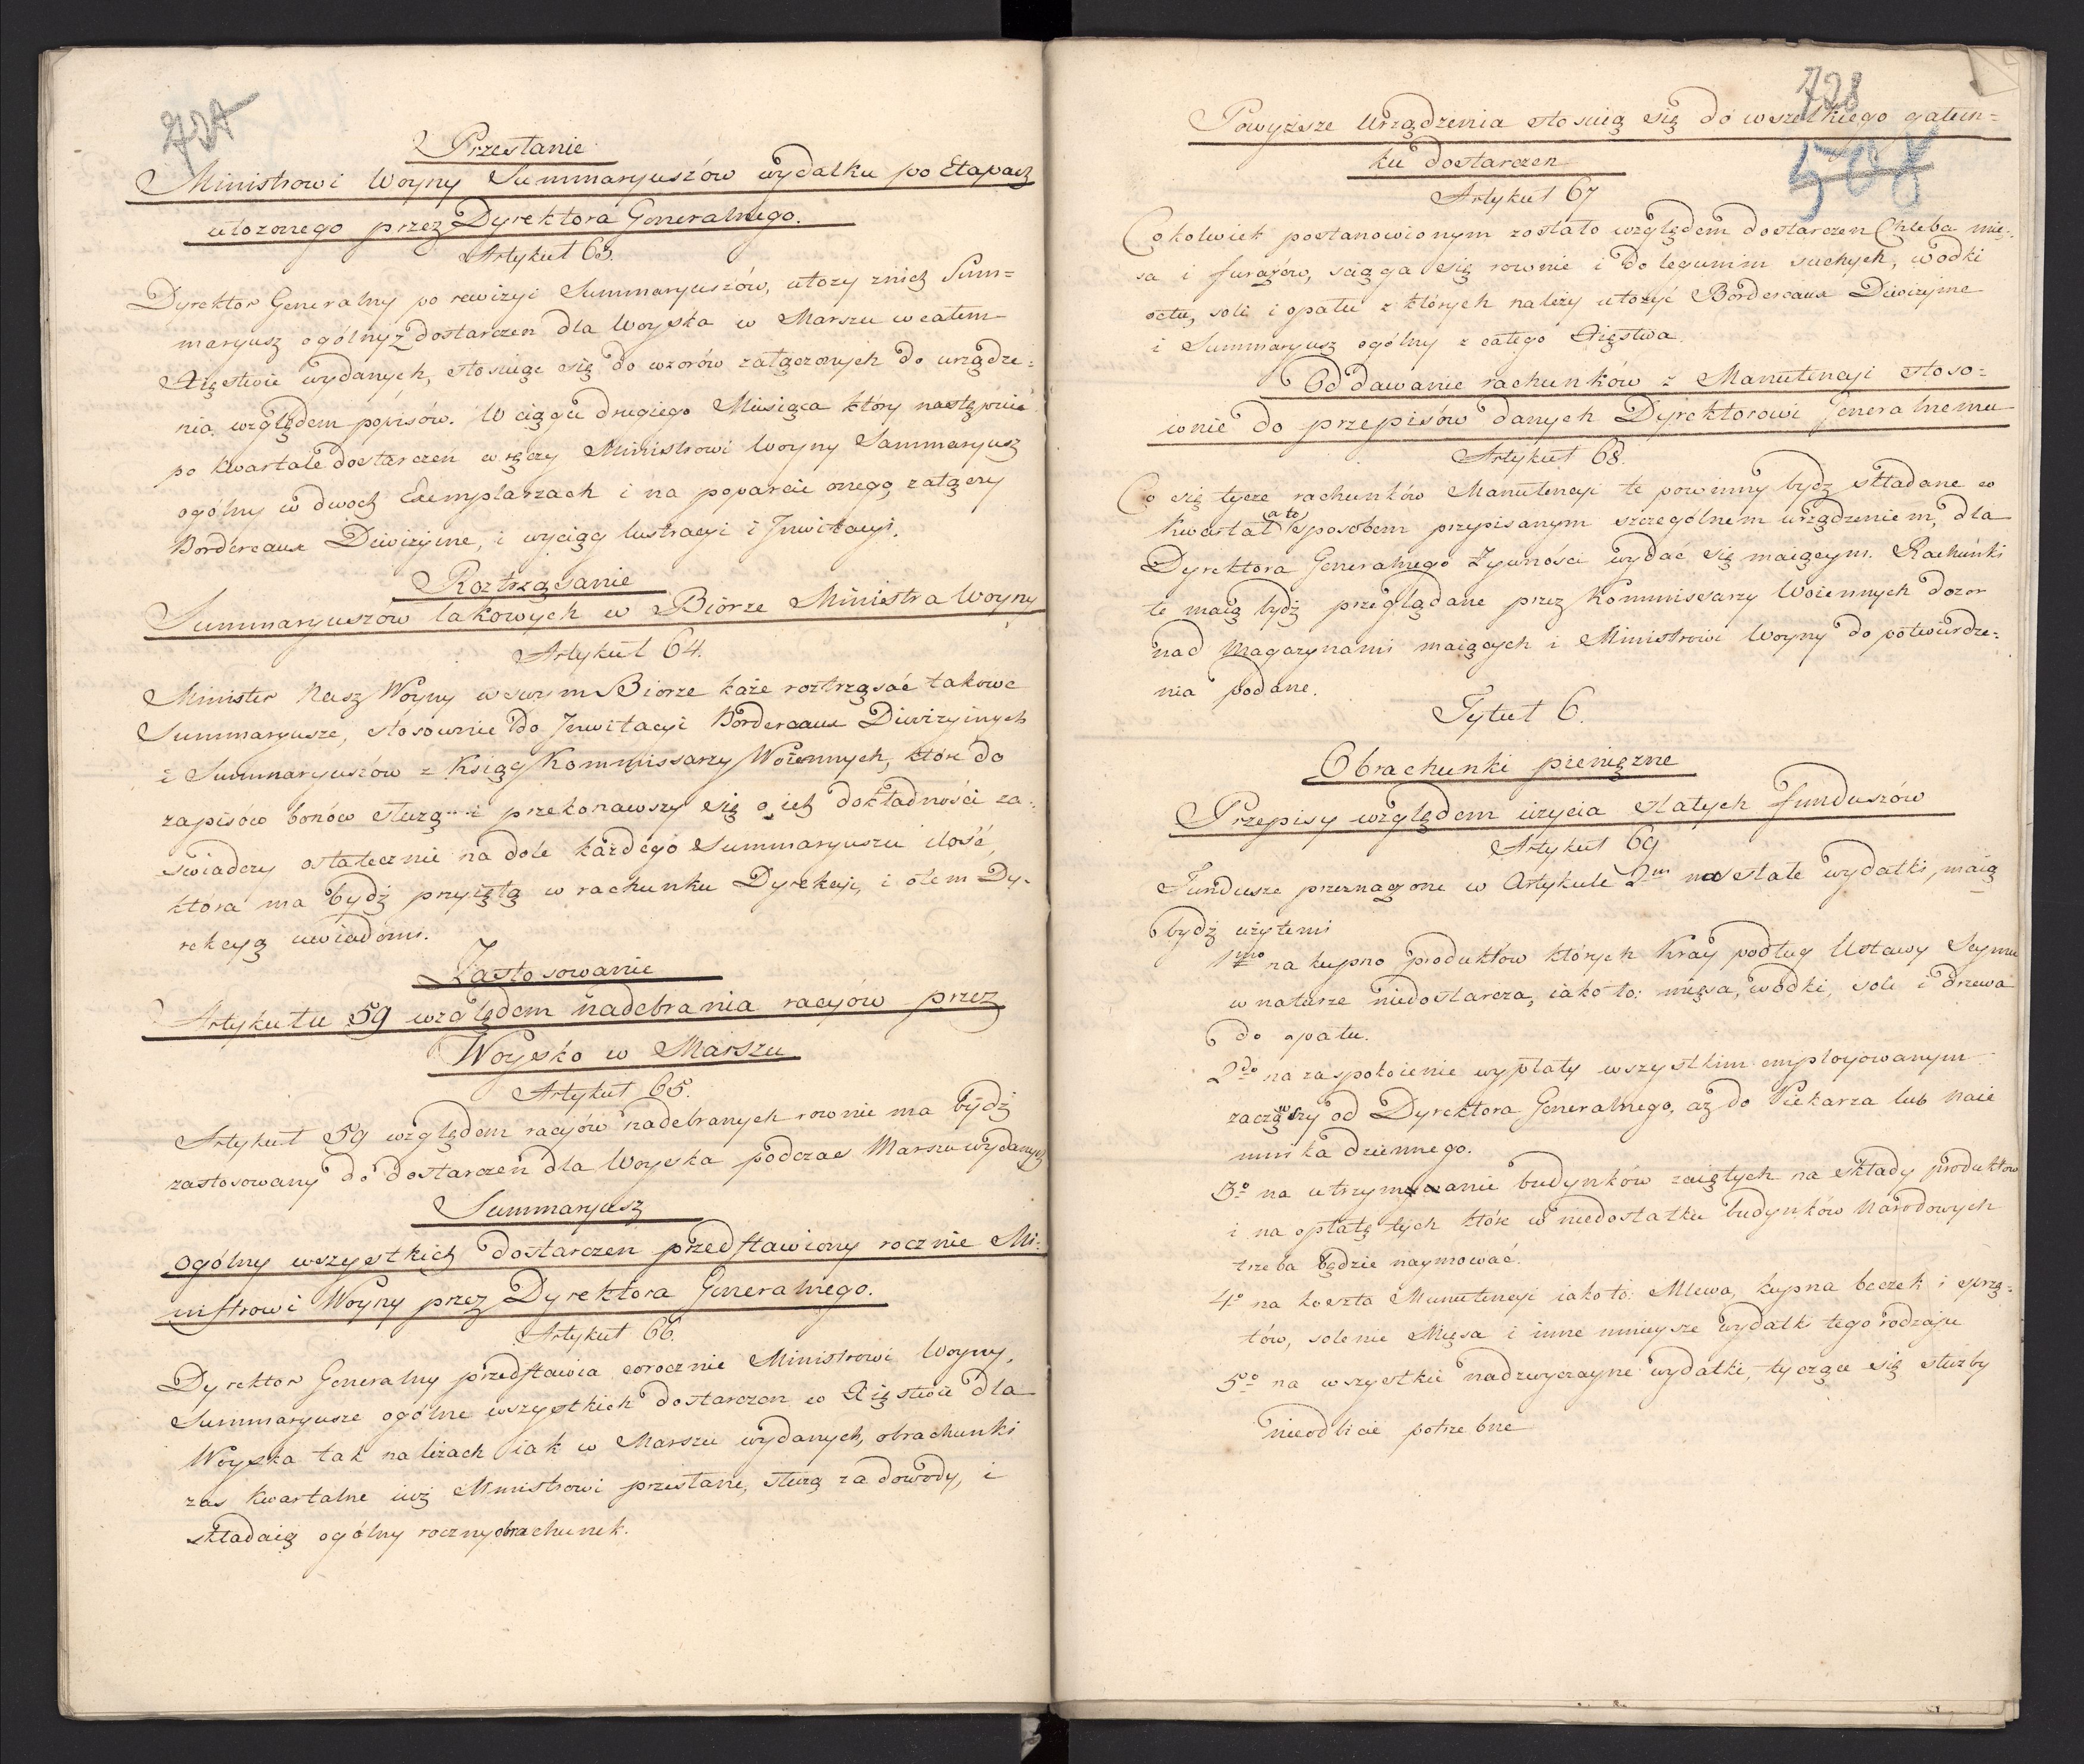 727
Przesłanie
Ministrowi Woyny Summaryuszów wydatku po Etapach
ułożonego przez Dyrektora Generalnego.
Artykuł 63.
Dyrektor Generalny po rewizyi Summaryuszów, ułoży z nich Sum=
maryusz ogólny z dostarczen dla Woyska w Marszu w całem
Xięstwie wydanych, stosuiąc się do wzorów załączonych do urządze=
nia względem popisów. W ciągu drugiego Miesiąca który nastąpi
po kwartale dostarczeń wręczy Ministrowi Woyny Summaryusz
ogólny w dwoch Exemplarzach i na poparcie onego załączy
Bordereaux Diwizyine, i wyciąg lustracyi i Inwitacyi.
Roztrząsanie
Summaryuszow takowych w Biórze Ministra Woyny
Artykuł 64.
Minister Nasz Woyny w swym Biorze każe roztrząsać takowe
Summaryusze, stosownie do Inwitacyi Bordereaux Diwizyinych
i Summaryuszów z Ksiąg Kommissarzy Woiennych, które do
zapisów bonów służą i przekonawszy się o ich dokładności za=
świadczy ostatecznie na dole każdego Summaryuszu ilość,
która ma bydź przyiętą w rachunku Dyrekcyi, i o tem Dy=
rekcyą uwiadomi.
Zastosowanie
Artykułu 59 względem nadebrania racyów przez
Woysko w Marszu
Artykuł 65.
Artykuł 59 względem racyów nadebranych rownie ma bydź
zastosowany do dostarczeń dla Woyska podczas Marszu wydanych
Summaryusz
ogólny wszystkich dostarczen przedstawiony rocznie Mi=
nistrowi Woyny przez Dyrektora Generalnego.
Artykuł 66.
Dyrektor Generalny przedstawia corocznie Ministrowi Woyny,
Summaryusze ogólne wszystkich dostarczen w Xięstwie dla
Woyska tak na leżach iak w Marszu wydanych, obrachunki
zas kwartalne iuż Ministrowi przesłane, służą za dowody, i
składaią ogólny roczny obrachunek.
728
508
Powyższe Urządzenia stosuią się do wszelkiego gatun=
ku dostarczen
Artykuł 67
Cokolwiek postanowionym zostało względem dostarczen Chleba mię=
sa i furażów, sciąga się rownie i do legumim suchych, wodki
octu, soli i opału z których należy ułożyć Bordereaux Diwizyine
i Summaryusz ogólny z całego Xięstwa.
Oddawanie rachunków z Manutencyi stoso=
wnie do przepisów danych Dyrektorowi Generalnemu
Artykuł 68.
Co się tycze rachunków Manutencyi te powinny bydź składane co
kwartał a to sposobem przypisanym szczególnem urządzeniem, dla
Dyrektora Generalnego Żywności wydać się maiącym. Rachunki
te maią bydź przeglądane przez Kommissarzy Woiennych dozor
nad Magazynami maiących i Ministrowi Woyny do potwierdze=
nia podane.
Tytuł 6.
Obrachunki pieniężne
Przepisy względem użycia stałych funduszów
Artykuł 69
Fundusze przeznaczone w Artykule 2m na stałe wydatki, maią
bydź użytemi
1mo na kupno produktów których Kray podług Ustawy Seymu
w naturze niedostarcza, iako to: mięsa, wodki, soli i drzewa
do opału.
2do na zaspokoienie wypłaty wszystkim employowanym
zacząwszy od Dyrektora Generalnego, aż do Piekarza lub Naie
mnika dziennego.
3o na utrzymywanie budynków zaiętych na składy produktow
i na opłatę tych które w niedostatku budynków Narodowych
trzeba będzie naymować.
4o na koszta Manutencyi iako to: Mlewa, kupna beczek i sprzę=
tów, solenie Mięsa i inne mnieysze wydatki tego rodzaju
5o na wszystkie nadzwyczayne wydatki, tyczące się służby
nieodbicie potrzebne